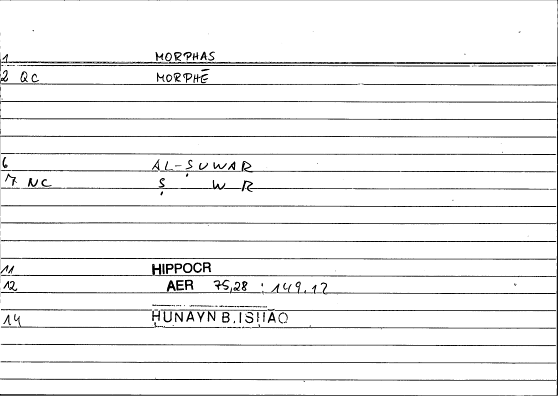 1 MORPHAS
2 QC MORPHĒ
6 AL-ṢUWAR
7 NC Ṣ W R
11 HIPPOCR
12 AER 75,28 : 149,12
14 ḤUNAYN B. ISḤĀQ